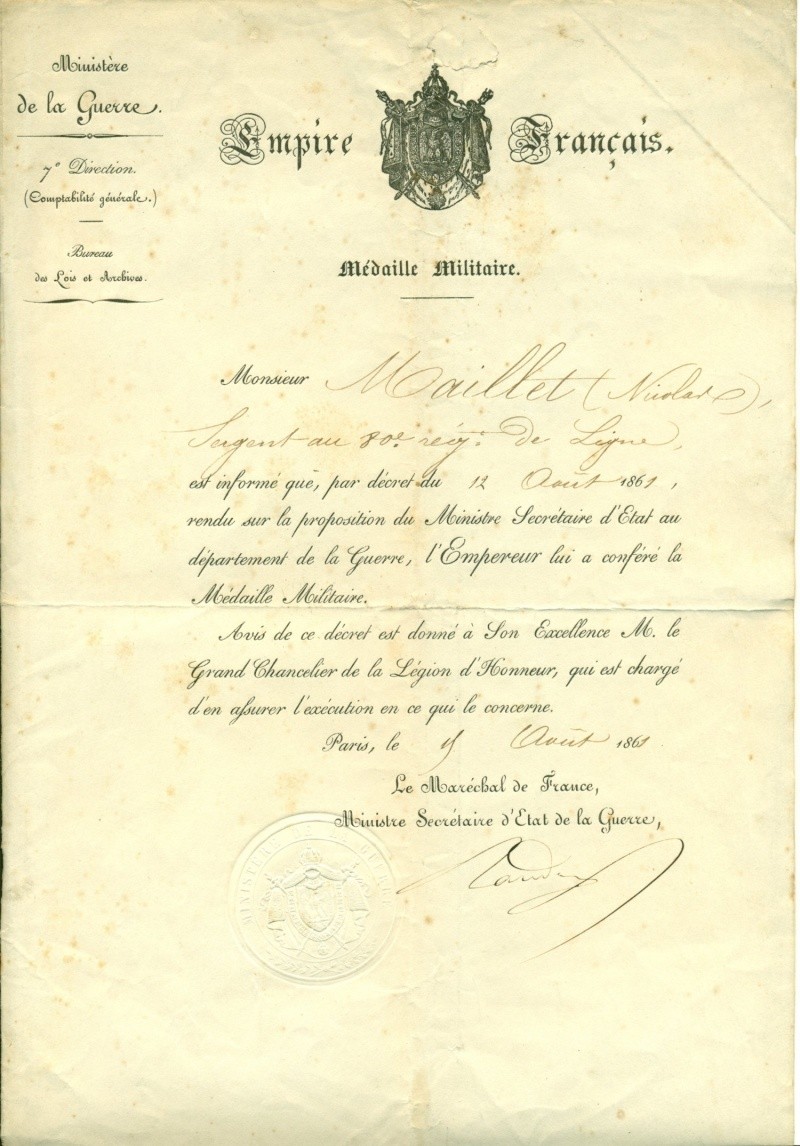 Ministère
de la Guerre.
7e Direction.
(Comptabilité générale.)
Bureau
des Lois et Archives.
Empire Français.
Médaille Militaire.
Monsieur Maillet (Nicolas),
Sergent au 80e régt de Ligne,
est informé que, par décret du 12 Août 1861,
rendu sur la proposition du Ministre Secrétaire d'Etat au
département de la Guerre, l'Empereur lui a conféré la
Médaille Militaire.
Avis de ce décret est donné à Son Excellence M. le
Grand Chancelier de la Légion d'Honneur, qui est chargé
d'en assurer l'exécution en ce qui le concerne.
Paris, le Août 1861
Le Maréchal de France,
Ministre Secrétaire d'Etat de la Guerre,
MINISTÈRE DE LA GUERRE